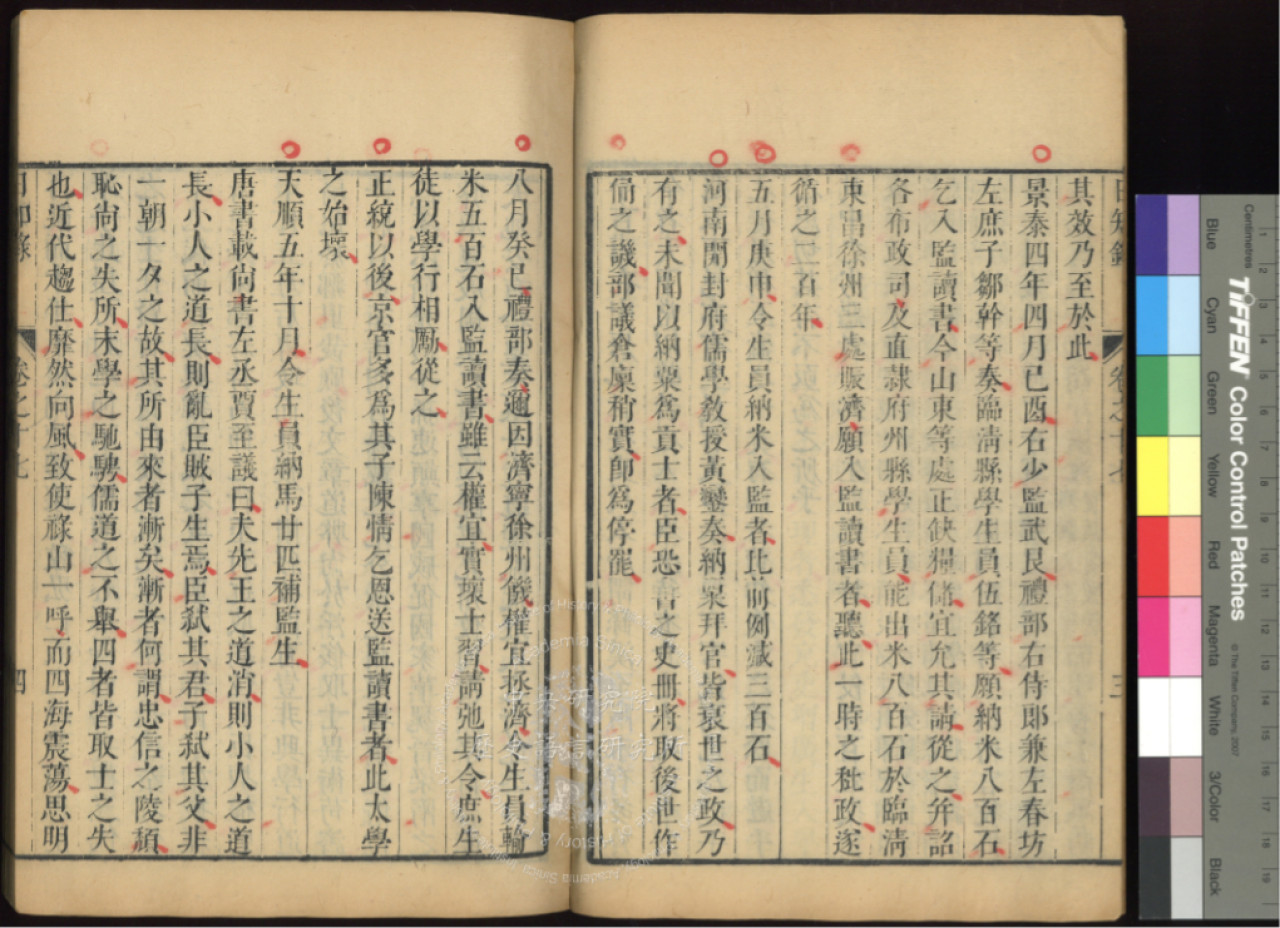 日知錄 卷之十七 三
其效乃至於此
景泰四年四月己酉右少監武艮禮部右侍郎兼左春坊
左庶子鄒幹等奏臨淸縣學生員伍銘等願納米八百石
乞入監讀書今山東等處正缺糧儲宜允其請從之幷詔
各布政司及直隷府州縣學生員能出米八百石於臨淸
東昌徐州三處賑濟願入監讀書者聽此一時之秕政遂
循之二百年
五月庚申令生員納米入監者比前例減三百石
河南開封府儒學敎授黃鑾奏納粟拜官皆衰世之政乃
有之未聞以納粟爲貢士者臣恐書之史冊將取後世作
俑之譏部議倉廩稍實卽爲停罷
八月癸巳禮部奏邇因濟寧徐州饑權宜拯濟令生員輸
米五百石入監讀書雖云權宜實壞士習請弛其令庶生
徒以學行相勵從之
正統以後京官多爲其子陳情乞恩送監讀書者此太學
之始壞
天順五年十月令生員納馬廿匹補監生
唐書載尙書左丞賈至議曰夫先王之道消則小人之道
長小人之道長則亂臣賊子生焉臣弑其君子弑其父非
一朝一夕之故其所由來者漸矣漸者何謂忠信之陵頹
恥尙之失所末學之馳騁儒道之不舉四者皆取士之失
也近代趨仕靡然向風致使祿山一呼而四海震蕩思明
日知錄 卷之十七 四
Centimetres
TIFFEN Color Control Patches
© The Tiffen Company, 2007
Blue Cyan Green Yellow Red Magenta White 3/Color Black
1 2 3 4 5 6 7 8 9 10 11 12 13 14 15 16 17 18 19